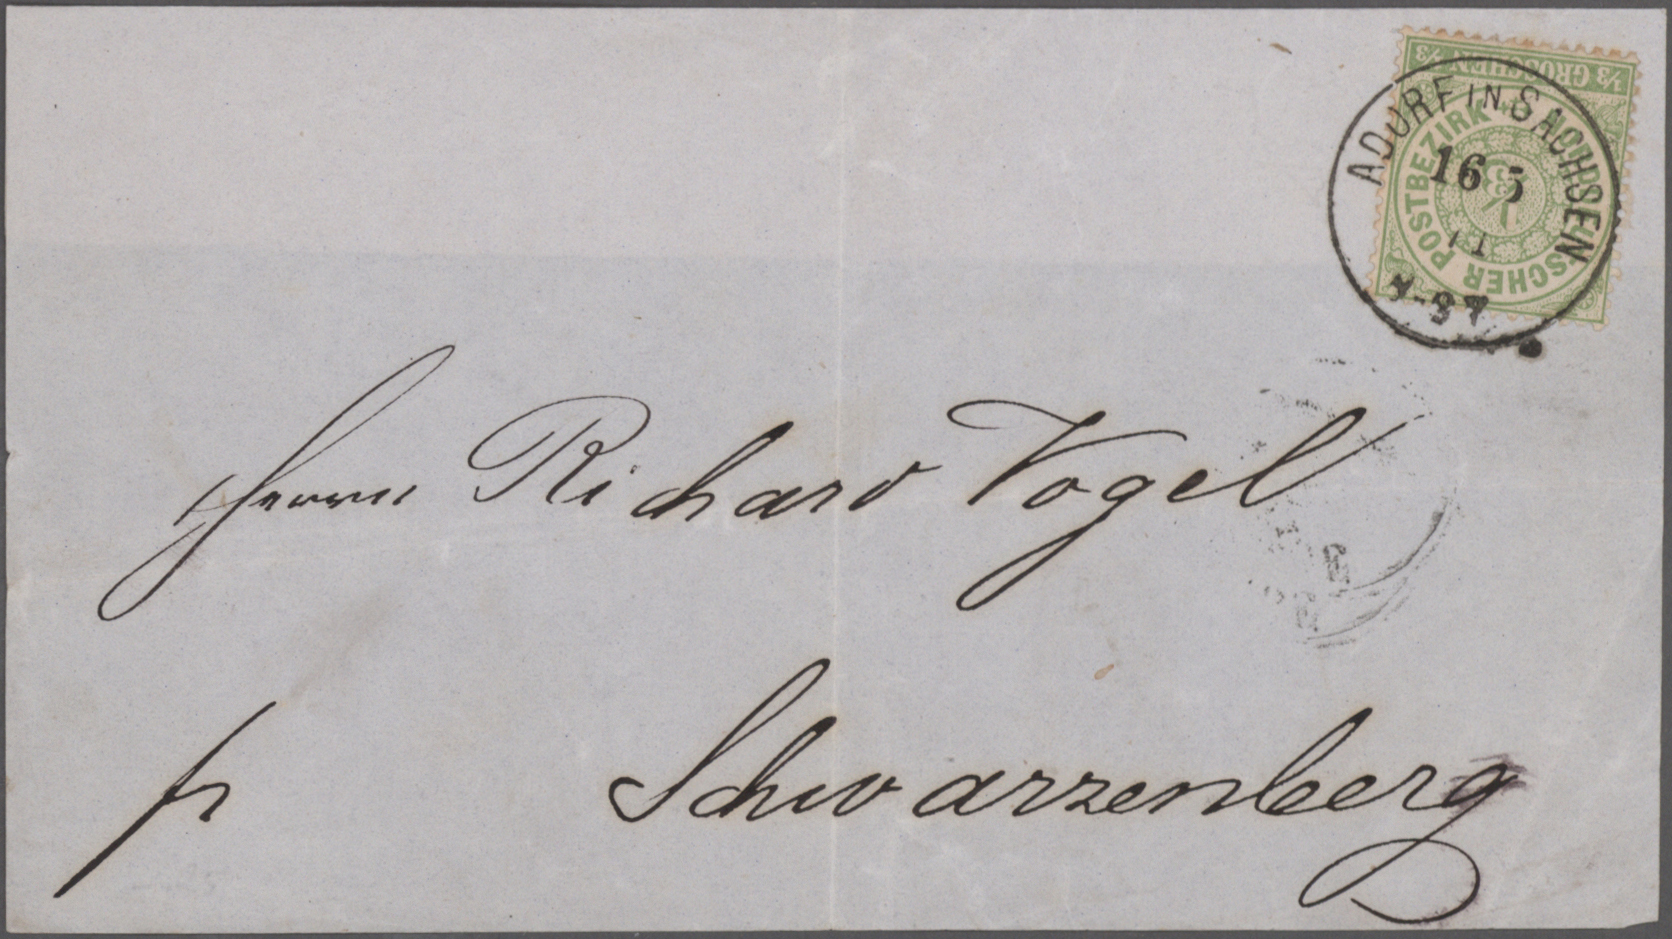 ⅓ GROSCHEN ⅓
NORDDEUTSCHER POSTBEZIRK
⅓
ADORF IN SACHSEN
16 5
71
Herrn Richard Vogel
fr Schwarzenberg